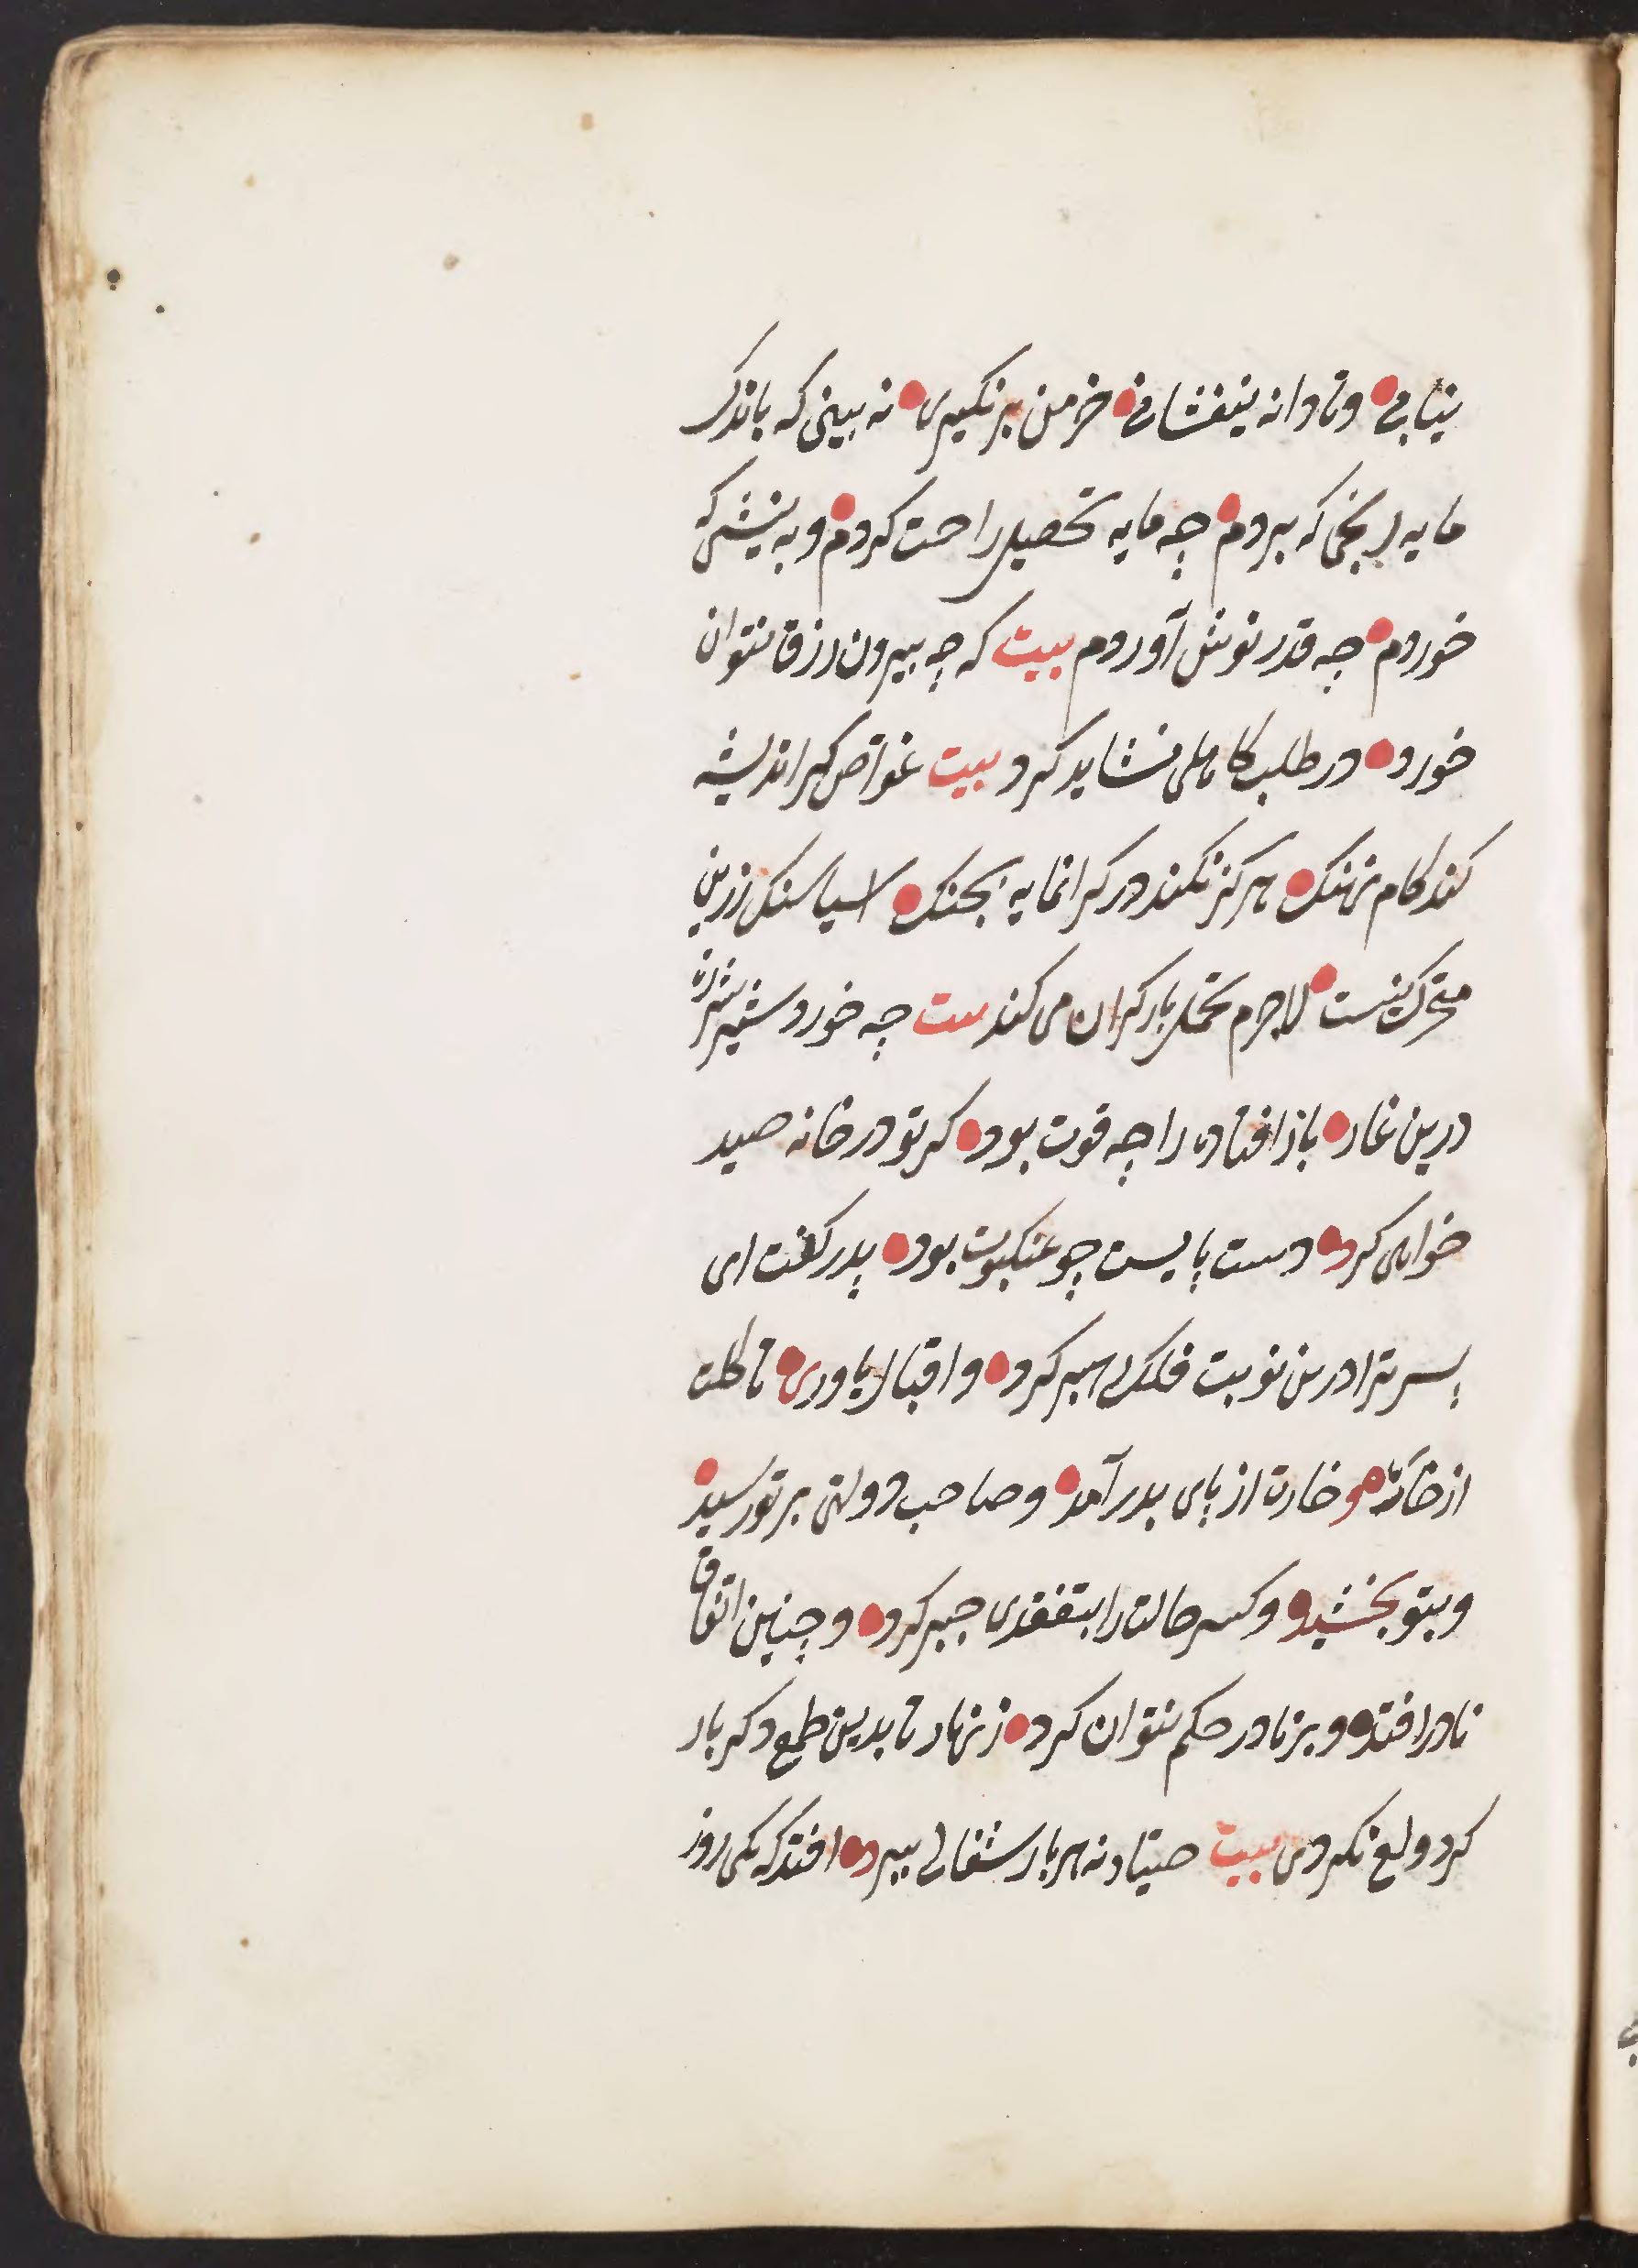 نیابی و تا دانه نیفشانی خرمن بر نکیری نه بینی که باندک
مایه رنجی که بردم چه مایه تحصیل راحت کردم و به نیشی که
خوردم چه قدر نوش آوردم بیت کر چه بیرون رزق نتوان
خورد در طلب کاهلی نشاید کرد بیت غواص کر اندیشه
کند کام نهنک هرکز نکند در کرانمایه بچنک آسیا سنک زرین
متحرک نیست لاجرم تحمل بار کران می کند بیت چه خورد شیر شرزه
درین غار باز افتاده را چه قوت بود کر تو در خانه صید
خواهی کرد دست پایست چو عنکبوت بود پدر کفت ای
پسر ترا درین نوبت فلک رهبر کرد و اقبال یاوری تا کلت
از خار و خارت از پای بدر آمد و صاحب دولتی بر تو رسید
و بتو بخشید و کسر حالت را بتفقدی جبر کرد و چنین اتفاق
نادر افتد و بر نادر حکم نتوان کرد زنهار تا بدین طمع دکر بار
کرد ولع نکردی بیت صیاد نه هر بار شغالی ببرد افتد که یکی روز